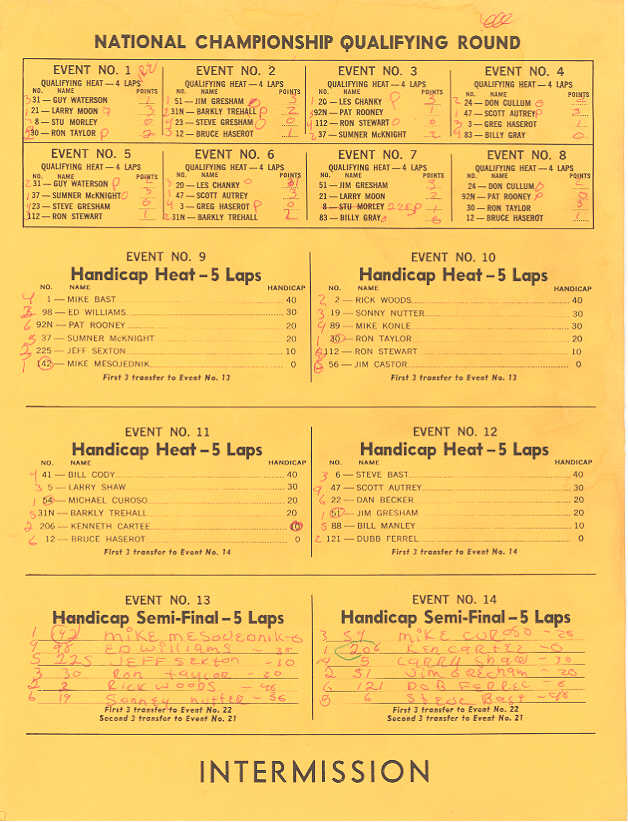 NATIONAL CHAMPIONSHIP QUALIFYING ROUND
EVENT NO. 1
QUALIFYING HEAT — 4 LAPS
NO. NAME POINTS
31 — GUY WATERSON 1
21 — LARRY MOON 3
8 — STU MORLEY 0
30 — RON TAYLOR 2
EVENT NO. 2
QUALIFYING HEAT — 4 LAPS
NO. NAME POINTS
51 — JIM GRESHAM 3
31N — BARKLY TREHALL 2
23 — STEVE GRESHAM 0
12 — BRUCE HASEROT 1
EVENT NO. 3
QUALIFYING HEAT — 4 LAPS
NO. NAME POINTS
20 — LES CHANKY 3
92N — PAT ROONEY 1
112 — RON STEWART 0
37 — SUMNER McKNIGHT 2
EVENT NO. 4
QUALIFYING HEAT — 4 LAPS
NO. NAME POINTS
24 — DON CULLUM
47 — SCOTT AUTREY
3 — GREG HASEROT 1
83 — BILLY GRAY 0
EVENT NO. 5
QUALIFYING HEAT — 4 LAPS
NO. NAME POINTS
31 — GUY WATERSON
37 — SUMNER McKNIGHT 3
23 — STEVE GRESHAM
112 — RON STEWART 1
EVENT NO. 6
QUALIFYING HEAT — 4 LAPS
NO. NAME POINTS
20 — LES CHANKY
47 — SCOTT AUTREY 3
3 — GREG HASEROT 0
31N — BARKLY TREHALL 2
EVENT NO. 7
QUALIFYING HEAT — 4 LAPS
NO. NAME POINTS
51 — JIM GRESHAM 3
21 — LARRY MOON 2
8 — STU MORLEY 1
83 — BILLY GRAY
EVENT NO. 8
QUALIFYING HEAT — 4 LAPS
NO. NAME POINTS
24 — DON CULLUM
92N — PAT ROONEY
30 — RON TAYLOR 3
12 — BRUCE HASEROT 1
EVENT NO. 9
Handicap Heat – 5 Laps
NO. NAME HANDICAP
4 1 — MIKE BAST 40
3 98 — ED WILLIAMS 30
6 92N — PAT ROONEY 20
5 37 — SUMNER McKNIGHT 20
2 225 — JEFF SEXTON 10
1 142 — MIKE MESOJEDNIK 0
First 3 transfer to Event No. 13
EVENT NO. 10
Handicap Heat – 5 Laps
NO. NAME HANDICAP
2 2 — RICK WOODS 40
3 19 — SONNY NUTTER 30
4 89 — MIKE KONLE 30
1 30 — RON TAYLOR 20
112 — RON STEWART 10
56 — JIM CASTOR 0
First 3 transfer to Event No. 13
EVENT NO. 11
Handicap Heat – 5 Laps
NO. NAME HANDICAP
4 41 — BILL CODY 40
3 5 — LARRY SHAW 30
1 54 — MICHAEL CUROSO 20
5 31N — BARKLY TREHALL 20
2 206 — KENNETH CARTEE 10
6 12 — BRUCE HASEROT 0
First 3 transfer to Event No. 14
EVENT NO. 12
Handicap Heat – 5 Laps
NO. NAME HANDICAP
3 6 — STEVE BAST 40
4 47 — SCOTT AUTREY 30
6 22 — DAN BECKER 20
1 51 — JIM GRESHAM 20
5 88 — BILL MANLEY 10
2 121 — DUBB FERREL 0
First 3 transfer to Event No. 14
EVENT NO. 13
Handicap Semi-Final – 5 Laps
1 142 MIKE MESOJEDNIK-0
4 98 ED WILLIAMS - 30
5 225 JEFF SEXTON -10
3 30 Ron taylor - 20
2 2 RICK WOODS - 40
6 19 Sonney nutter - 30
First 3 transfer to Event No. 22
Second 3 transfer to Event No. 21
EVENT NO. 14
Handicap Semi-Final – 5 Laps
3 54 MIKE CUROSO - 20
1 206 KEN CARTEE - 0
4 5 LARRY Shaw - 30
2 51 Jim GRECHAM - 20
6 121 DUB FERREL - 0
6 STEVE BAST - 40
First 3 transfer to Event No. 22
Second 3 transfer to Event No. 21
INTERMISSION